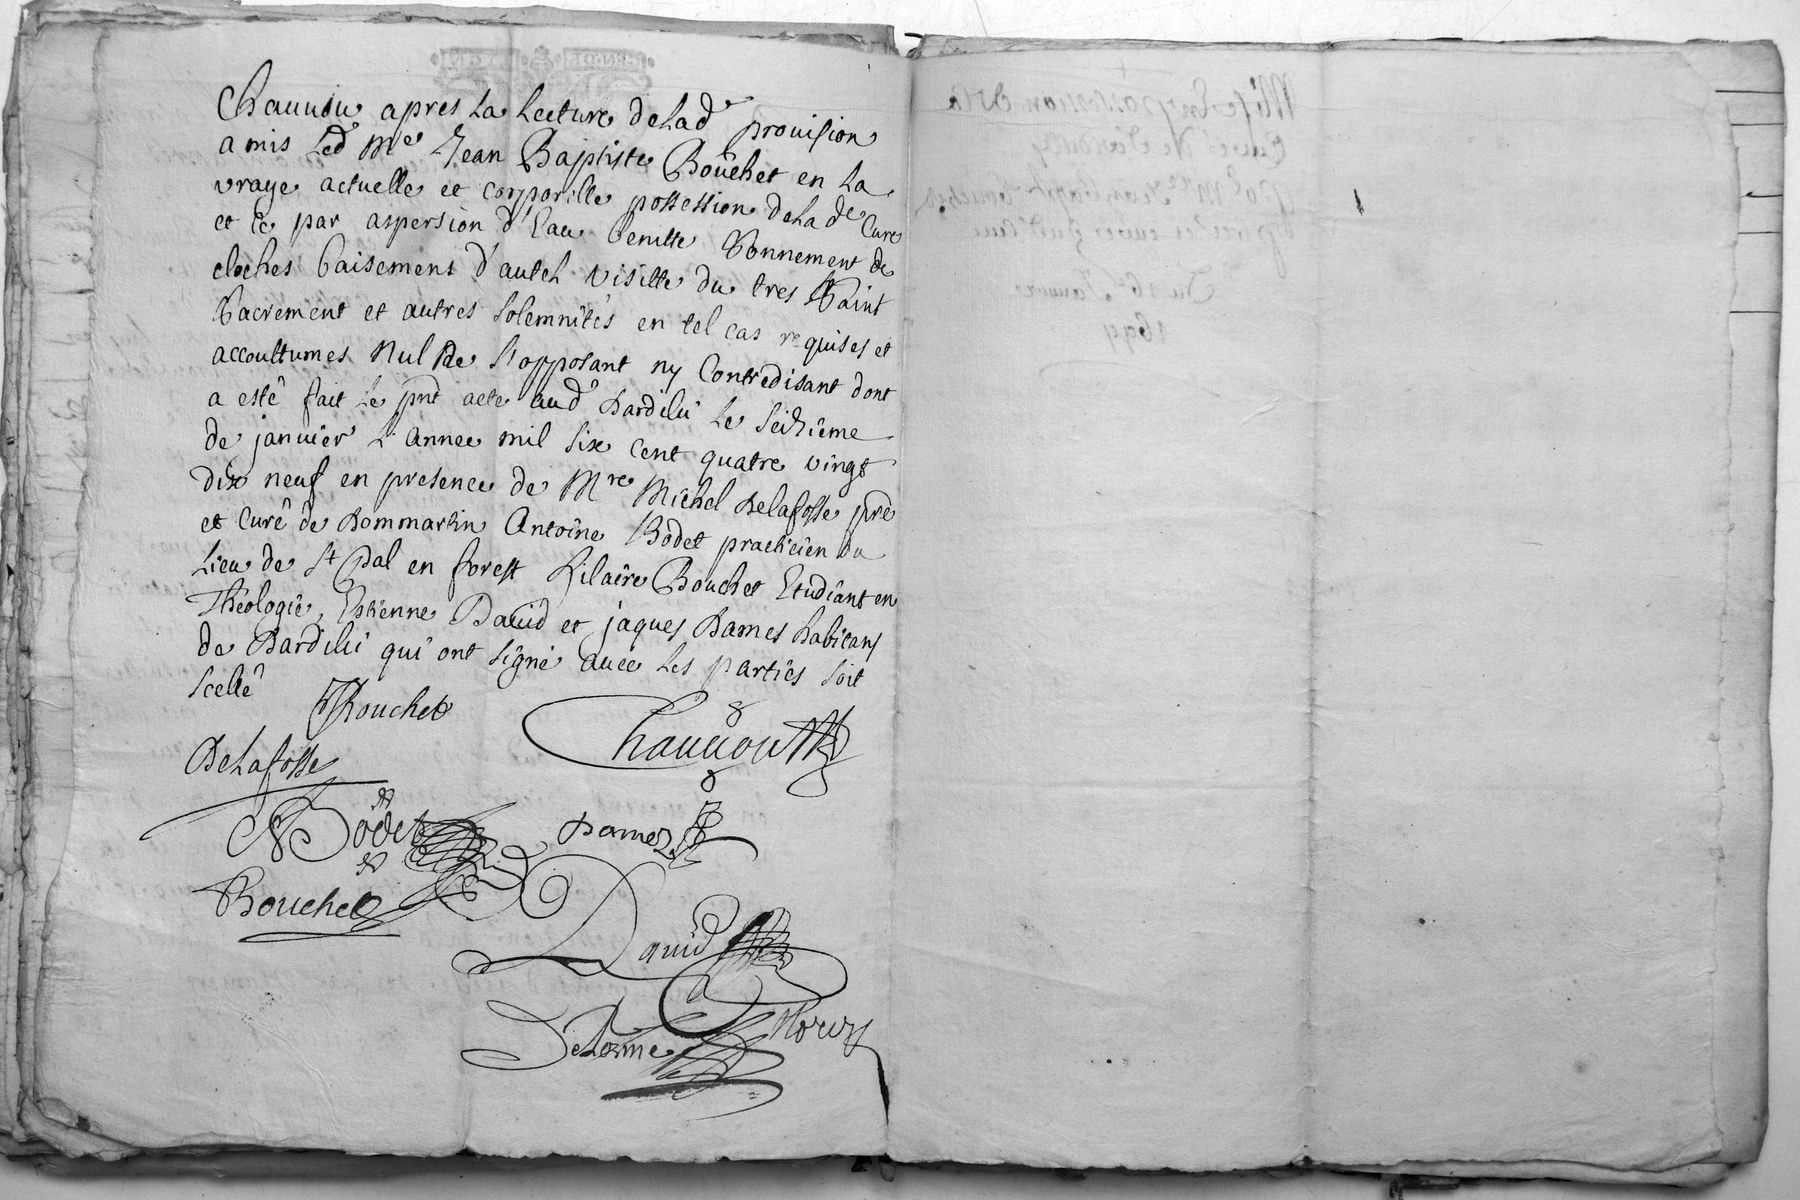 Chauuou apres La Lecture de Lad.e prouision
a mis Led. Me Jean Baptiste Boûchet en La
vraye actuelle et corporille possession de La de Cure
et ce par aspersion d'Eau benitte Sonnement de
cloches baisement d'autel visitte du tres Saint
Sacrement et autres solemnités en tel cas requises et
accouttumes Nul ne s'opposant ny Contredisant dont
a esté fait Le pnt acte aud. Bardilli Le Seiziême
de januier L'annee mil six cent quatre vingt
dix neuf en presence de Mre Michel Delafosse pre
et Curé de Dommartin Antoine Bodet practicien du
Lieu de St en forest hilaire Bouchet Etudiant en
Theologie, Estienne Dauid et jaques Dames habitans
de Bardilli qui ont signé auec Les parties soit
scellé
JBouchet
Chauuou
DeLafosse
ABodet
Dames
Bouchet
Dauid
DeLorme
Mise En possession de la
Cure de
po.r Mre Jean Bapt. bouchet
Du 16e Januier
1699